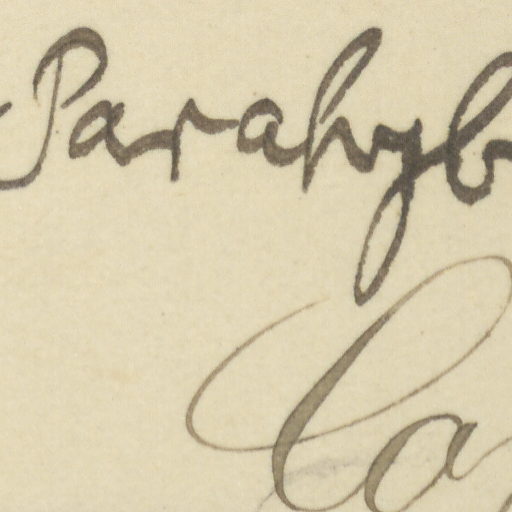 Parahyb
Ca